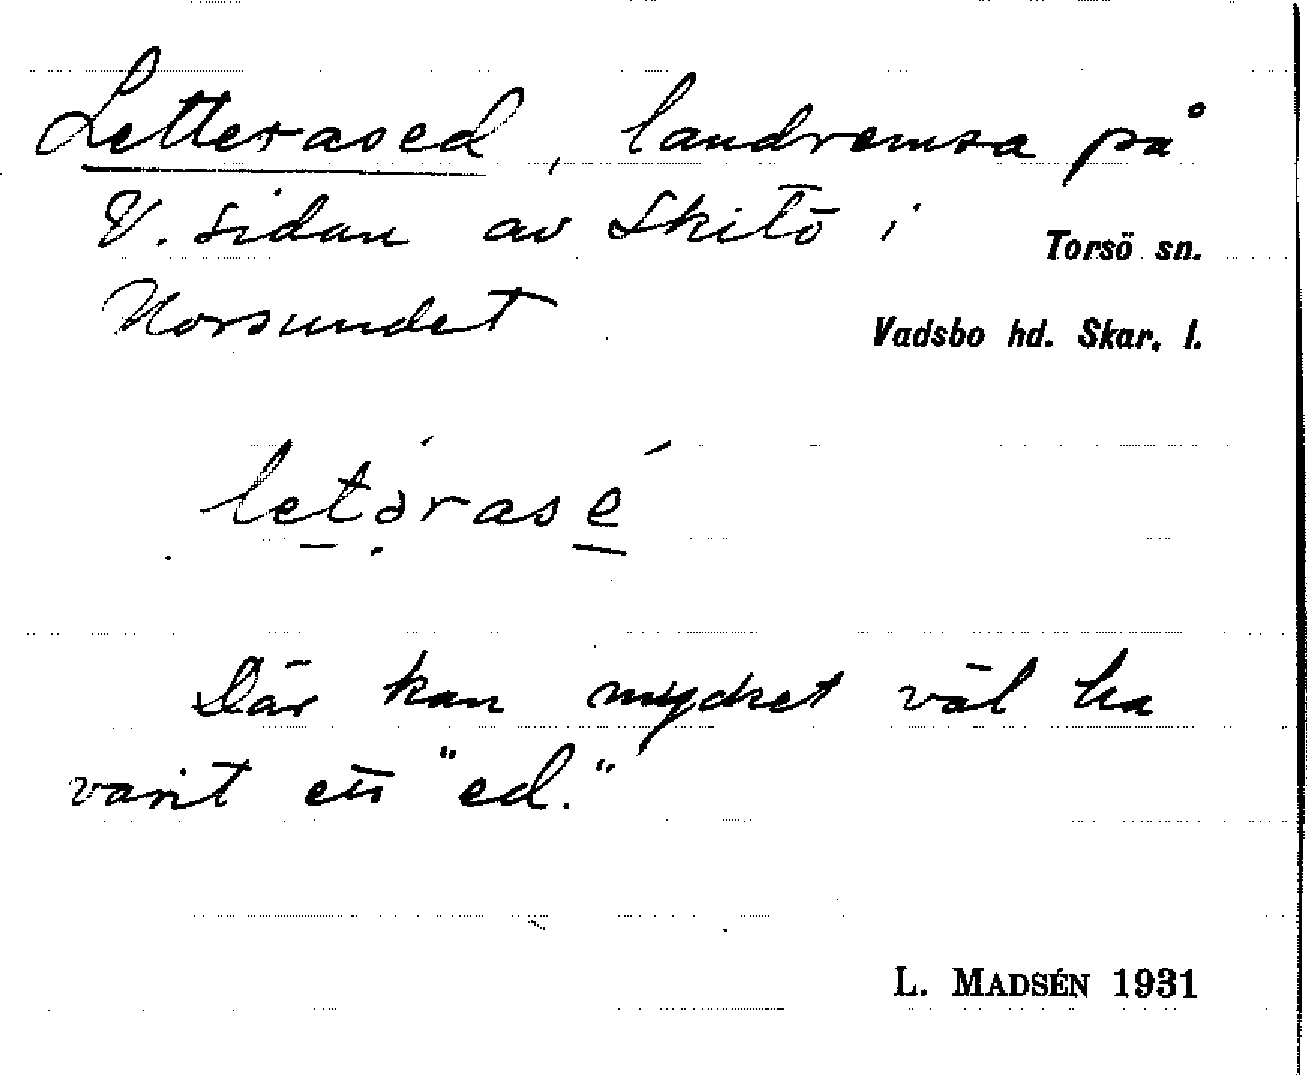 Letterased, landremsa på
V. sidan av Skitö i
Torsö sn.
Norsundet
Vadsbo hd. Skar. l.
letərasé
Där kan mycket väl ha
varit ett "ed."
L. MADSÉN 1931